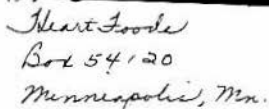 Heart Foods
Box 54120
Minneapolis, Mn.